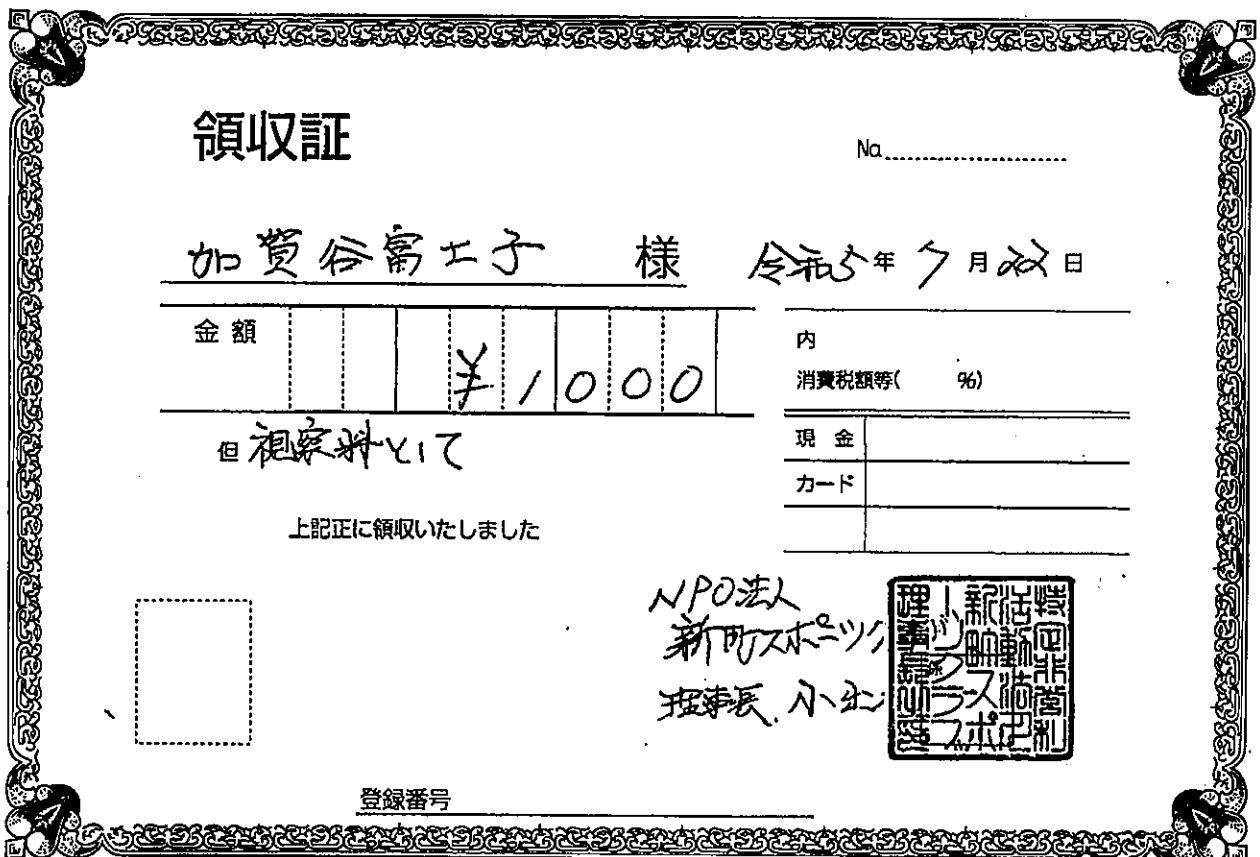 領収証
No.
加賀谷富士子 様
令和5年 7月22日
金額 ¥1000
但 視察料として
上記正に領収いたしました
内
消費税額等( %)
現金
カード
NPO法人
新町スポーツク
理事長 小出
特定非営利
活動法人
新町スポ
ーツクラブ
登録番号